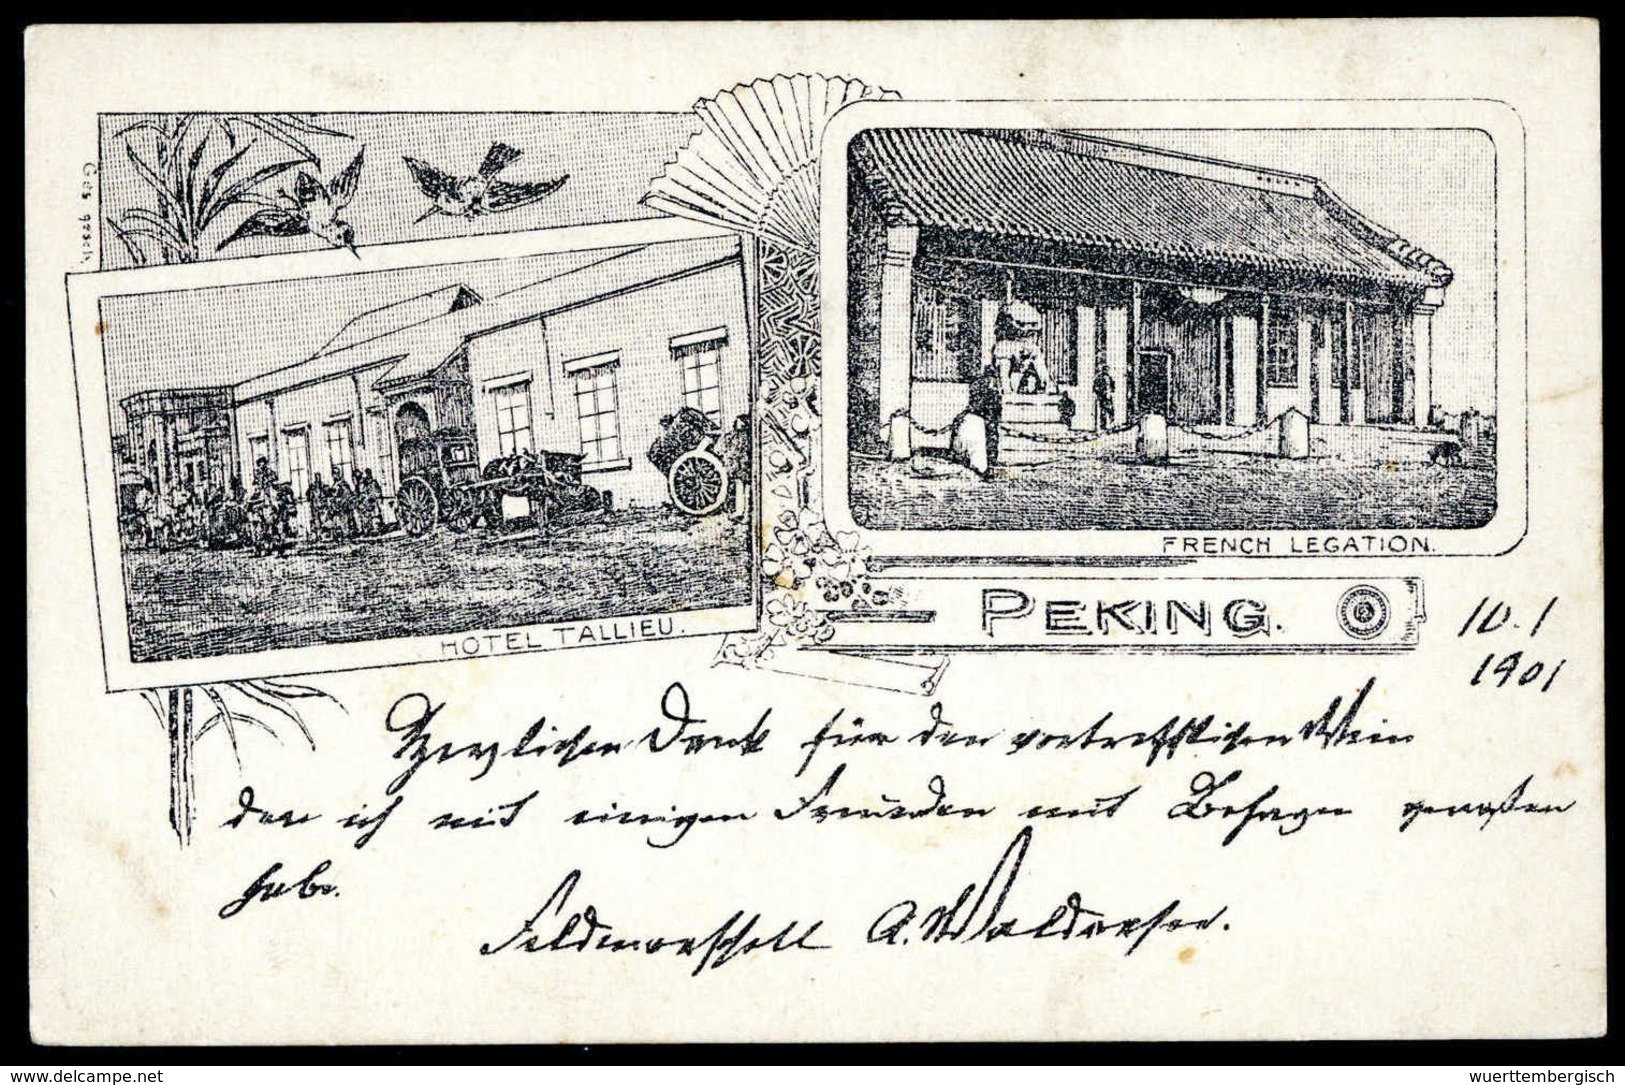 Ges gesch.
FRENCH LEGATION.
HOTEL TALLIEU.
PEKING.
10.1
1901
Herzlichen Dank für den vortrefflichen Wein
den ich mit einigen Freunden mit Behagen genoßen
habe.
Feldmarschall A. Waldersee.
www.delcampe.net
wuerttembergisch